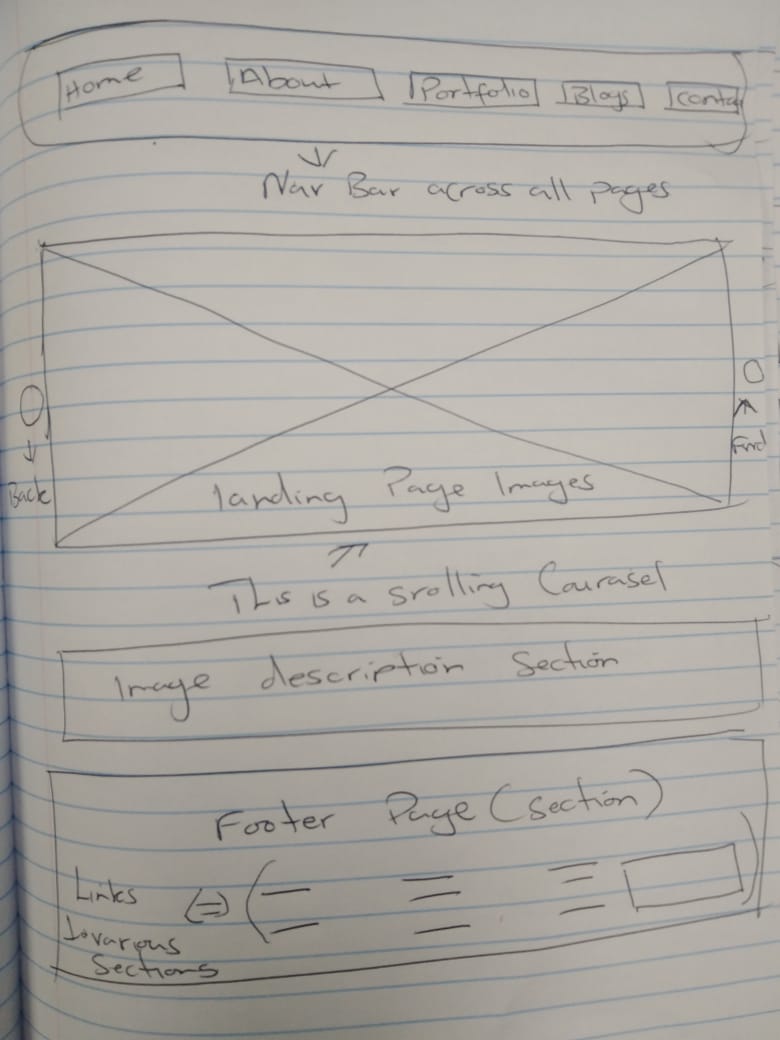 Home About Portfolio Blogs Conta
Nav Bar across all pages
Back
Fwd
landing Page Images
This is a srolling Courasel
Image description Section
Footer Page (section)
Links
to various
Sections